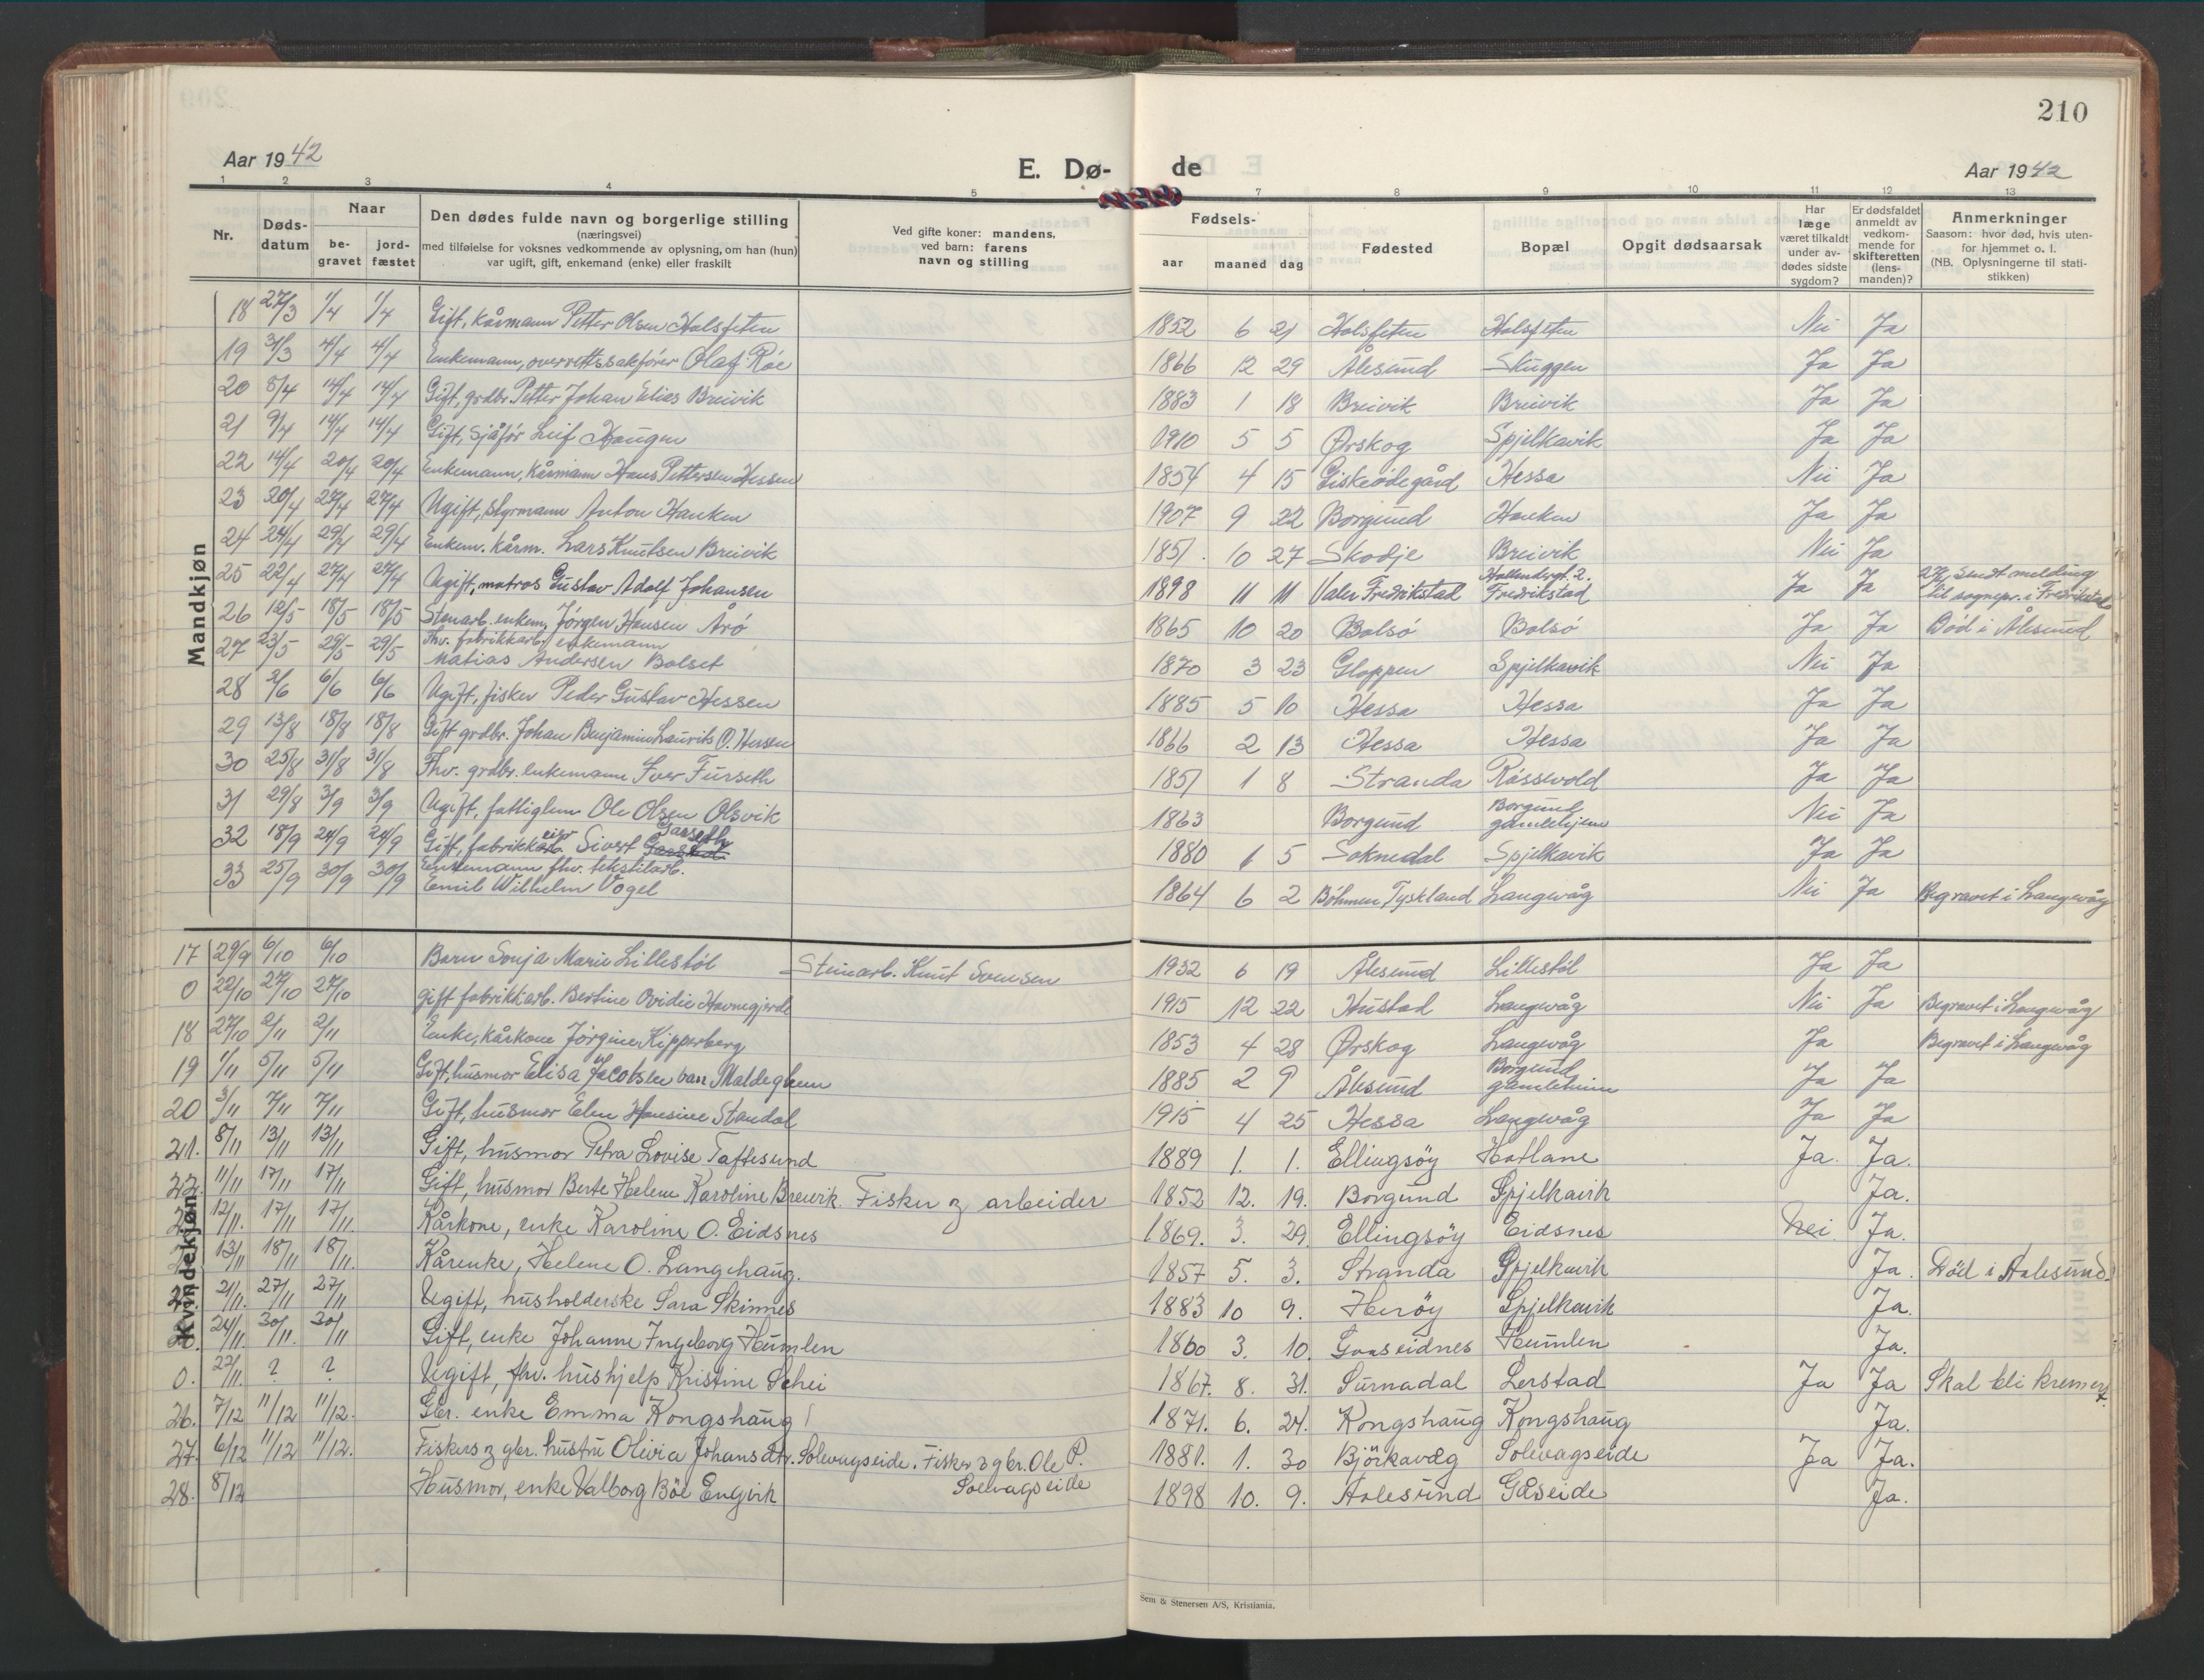 210
Aar 1942
E. Dø-
de
Aar 1942
1 2 3 4 5 7 8 9 10 11 12 13
Nr.
Døds-
datum
Naar
be-
gravet
jord-
fæstet
Den dødes fulde navn og borgerlige stilling
(næringsvei)
med tilføielse for voksnes vedkommende av oplysning, om han (hun)
var ugift, gift, enkemand (enke) eller fraskilt
Ved gifte koner: mandens,
ved barn: farens
navn og stilling
Fødsels-
aar maaned dag
Fødested
Bopæl
Opgit dødsaarsak
Har
læge
været tilkaldt
under av-
dødes sidste
sygdom?
Er dødsfaldet
anmeldt av
vedkom-
mende for
skifteretten
(lens-
manden)?
Anmerkninger
Saasom: hvor død, hvis uten-
for hjemmet o. l.
(NB. Oplysningerne til stati-
stikken)
Mandkjøn
18 27/3 1/4 1/4 Gift, kårmann Petter Olsen Holsfeten 1852 6 21 Holsfeten Holsfeten Nei Ja
19 31/3 4/4 4/4 Enkemann, overrettssakfører Olaf Röe 1866 12 29 Ålesund Skuggen Ja Ja
20 8/4 14/4 14/4 Gift, grdbr. Petter Johan Elias Breivik 1883 1 18 Breivik Breivik Ja Ja
21 9/4 14/4 14/4 Gift, sjåfør Leif Haugen 1910 5 5 Ørskog Spjelkavik Ja Ja
22 14/4 20/4 20/4 Enkemann, kårmann Hans Pettersen Hessen 1854 4 15 Giskeødegård Hessa Nei Ja
23 20/4 27/4 27/4 Ugift, styrmann Anton Hanken 1907 9 22 Borgund Hanken Ja Ja
24 24/4 29/4 29/4 Enkem. kårm. Lars Knutsen Breivik 1851. 10 27 Skodje Breivik Nei Ja
25 22/4 27/4 27/4 Ugift, matros Gustav Adolf Johansen 1898 11 11 Valer Fredrikstad Fredrikstad Ja Ja sendt melding
til sognepr. i Fredrikstad
26 12/5 18/5 18/5 Stenarb. enkem. Jørgen Hansen Årö 1865 10 20 Bolsö Bolsö Ja Ja Död i Ålesund
27 23/5 29/5 29/5 Fhv. fabrikkarb. enkemann
Matias Andersen Bolset 1870 3 23 Gloppen Spjelkavik Nei Ja
28 2/6 6/6 6/6 Ugift, fisker Peder Gustav Hessen 1885 5 10 Hessa Hessa Ja Ja
29 13/8 18/8 18/8 Gift grdbr. Johan Benjamin Laurits O. Hessen 1866 2 13 Hessa Hessa Ja Ja
30 25/8 31/8 31/8 Fhv. grdbr. enkemann Iver Furseth 1851 1 8 Stranda Råssevold Ja Ja
31 29/8 3/9 3/9 Ugift, fattiglem Ole Olsen Olsvik 1863 Borgund Borgund
gamlehjem Nei Ja
32 18/9 24/9 24/9 Gift, fabrikkeier Sivert 1880 1 5 Soknedal Spjelkavik Ja Ja
33 25/9 30/9 30/9 Enkemann fhv. tekstilarb.
Emil Wilhelm Vogel 1864 6 2 Böhmen, Tyskland Langevåg Nei Ja Begravet i Langevåg
Kvindekjøn
17 29/9 6/10 6/10 Barn Sonja Marie Lillestöl Steinarb. Knut Svensen 1932 6 19 Ålesund Lillestöl Ja Ja
0 22/10 27/10 27/10 gift fabrikkarb. Bertine Ovidie Havnegjerde 1915 12 22 Hustad Langevåg Nei Ja Begravet i Langevåg
18 27/10 2/11 2/11 Enke, kårkone Jørgine Kipperberg 1853 4 28 Ørskog Langevåg Ja Begravet i Langevåg
19 1/11 5/11 5/11 Gift, husmor Elisa Jacobsen van Maldeghem 1885 2 9 Ålesund Borgund
gamleheim Ja Ja
20 3/11 7/11 7/11 Gift, husmor Elen Hansine Standal 1915 4 25 Hessa Langevåg Ja Ja
21. 8/11 13/11 13/11 Gift, husmor Petra Lovise Taftesund 1889 1. 1. Ellingsöy Hatlane Ja. Ja.
22. 11/11 17/11 17/11 Gift, husmor Berte Helene Karoline Breivik. Fisker og arbeider 1852 12. 19. Borgund Spjelkavik Ja.
12/11. 17/11 17/11. Kårkone, enke Karoline O. Eidsnes 1869. 3. 29. Ellingsöy Eidsnes Nei. Ja.
13/11 18/11 18/11. Kårenke, Helene O. Langehaug. 1857 5. 3. Stranda Spjelkavik Ja. Död i Aalesund.
21/11. 27/11 27/11 Ugift, husholderske Sara Skinnes 1883 10 9. Heröy Spjelkavik Ja.
24/11. 30/11. 30/11 Gift, enke Johanne Ingeborg Humlen 1860 3. 10. Gaaseidnes Humlen Ja.
0. 22/11. ? ? Ugift, fhv. hushjelp Kristine Schei 1867. 8. 31. Surnadal Lerstad Ja Ja Skal bli kremert.
26. 7/12 11/12 11/12. Gbr. enke Emma Kongshaug 1871. 6. 24. Kongshaug Kongshaug Ja.
27. 6/12 11/12 11/12. Fiskers og gbr. hustru Olivia Johansdtr. Solevagseide. Fisker og gbr. Ole P.
Solevagseide 1881. 1. 30 Björkavåg Solevagseide Ja Ja.
28. 8/12 Husmor, enke Valborg Böe Engvik 1898 10. 9. Aalesund Gåseide Ja.
Sem & Stenersen A/S, Kristiania.